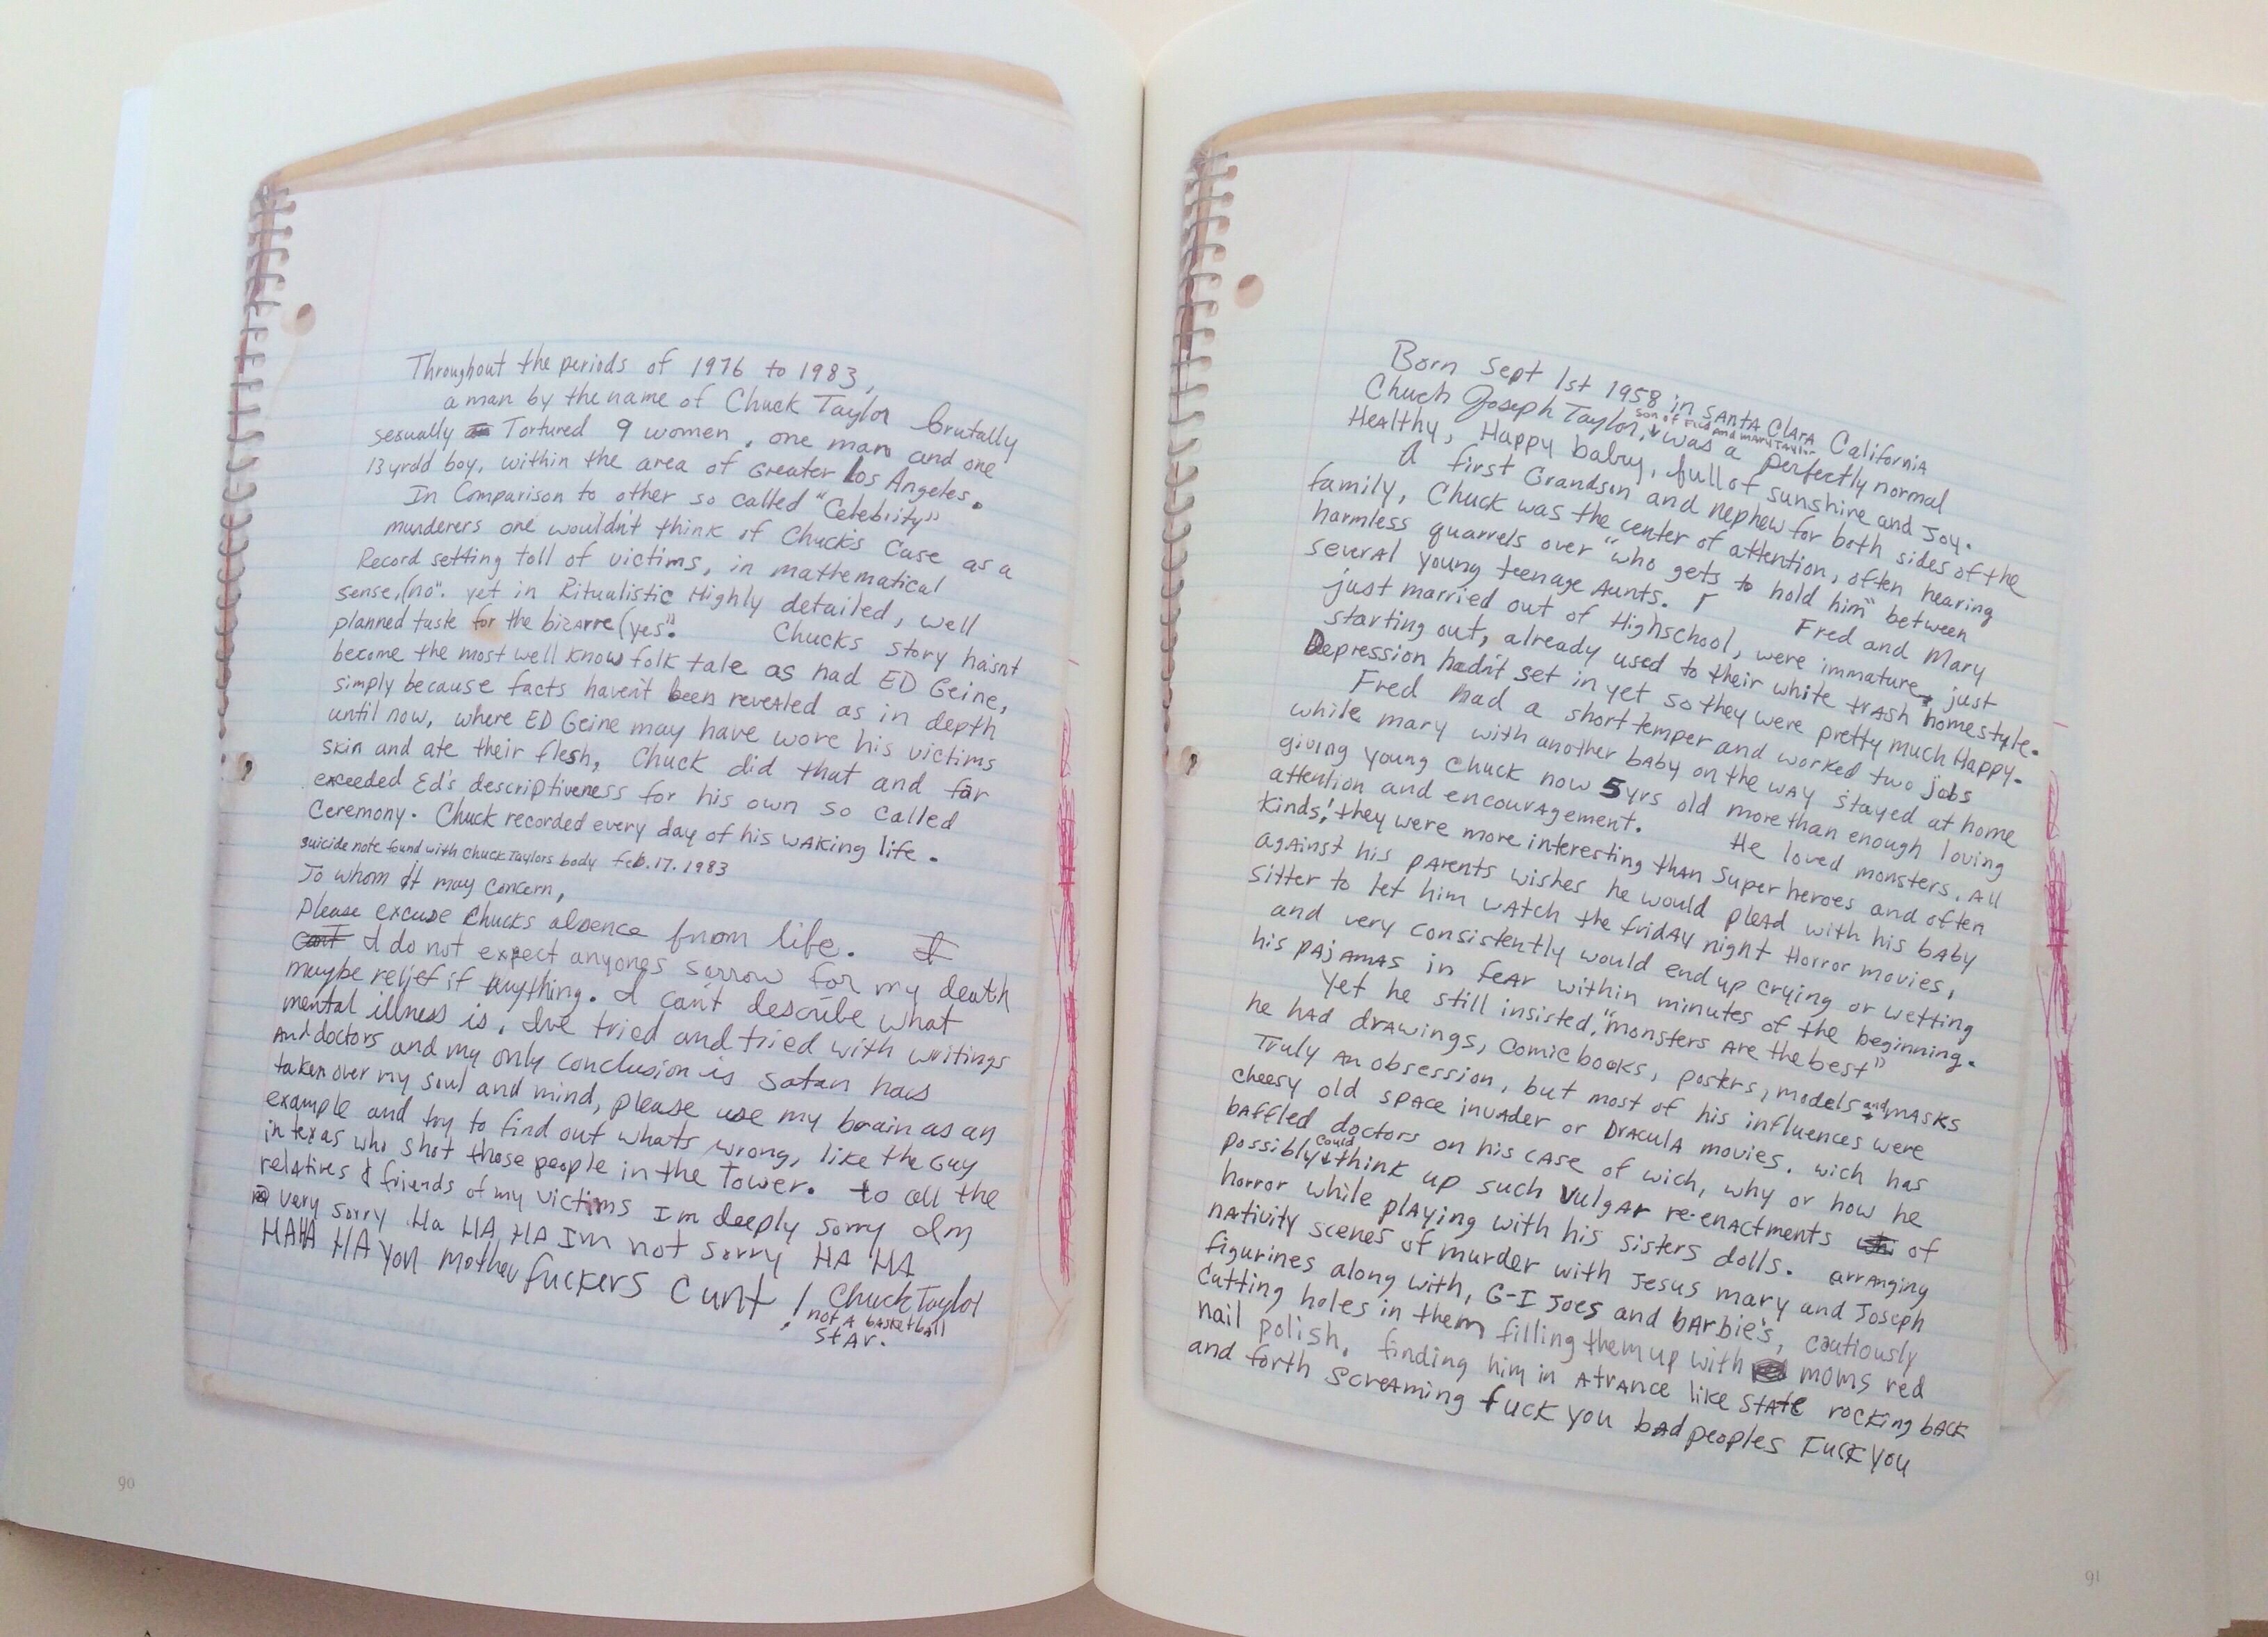 Throughout the periods of 1976 to 1983,
a man by the name of Chuck Taylor brutally
sexually Tortured 9 women, one man and one
13 yrold boy, within the area of Greater Los Angeles.
In Comparison to other so called "Celebrity"
murderers one wouldn't think of Chuck's Case as a
Record setting toll of victims, in mathematical
sense, (no". yet in Ritualistic Highly detailed, well
planned taste for the bizarre (yes". Chucks story hasnt
become the most well know folk tale as had ED Geine,
simply because facts haven't been revealed as in depth
until now, where ED Geine may have wore his victims
skin and ate their flesh, Chuck did that and far
exceeded Ed's descriptiveness for his own so called
Ceremony. Chuck recorded every day of his waking life.
suicide note found with Chuck Taylors body Feb. 17. 1983
To whom it may concern,
Please excuse Chucks absence from life. I
cant I do not expect anyones sorrow for my death
maybe relief if anything. I can't describe what
mental illness is, Ive tried and tried with writings
And doctors and my only conclusion is satan has
taken over my soul and mind, please use my brain as an
example and try to find out whats wrong, like the Guy
in texas who shot those people in the Tower. to all the
relatives & friends of my victims Im deeply sorry Im
very sorry Ha HA HA Im not sorry HA HA
HAHA HA you motherfuckers Cunt! Chuck Taylor
not A basketball
stAr.
90
Born Sept 1st 1958 in SAntA ClarA California
Chuck Joseph Taylor, son of Fred and mary Taylor was a perfectly normal
Healthy, Happy baby, full of sunshine and Joy.
A first Grandson and nephew for both sides of the
family, Chuck was the center of attention, often hearing
harmless quarrels over "who gets to hold him" between
severAl young teenage Aunts. Fred and Mary
just married out of Highschool, were immature, just
starting out, already used to their white trAsh homestyle.
Depression hadn't set in yet so they were pretty much Happy.
Fred had a short temper and worked two jobs
while mary with another bAby on the wAy stayed at home
giving young Chuck now 5 yrs old more than enough loving
attention and encourAgement. He loved monsters. All
Kinds! they were more interesting thAn Super heroes and often
agAinst his pArents wishes he would pleAd with his bAby
sitter to let him wAtch the fridAy night Horror movies,
and very consistently would end up crying or wetting
his pAjAmAs in feAr within minutes of the beginning.
Yet he still insisted, "monsters Are the best"
he hAd drAwings, comic books, posters, models and mAsks
Truly An obsession, but most of his influences were
cheesy old spAce invAder or DrAculA movies. wich has
bAffled doctors on his cAse of wich, why or how he
possibly could think up such VulgAr re-enActments of
horror while plAying with his sisters dolls. arrAnging
nAtivity scenes of murder with Jesus mary and Joseph
figurines along with, G-I Joes and bArbie's, cautiously
Cutting holes in them filling them up with moms red
nail polish, finding him in A trAnce like StAte rocking bAck
and forth screAming fuck you bAd peoples Fuck you
91